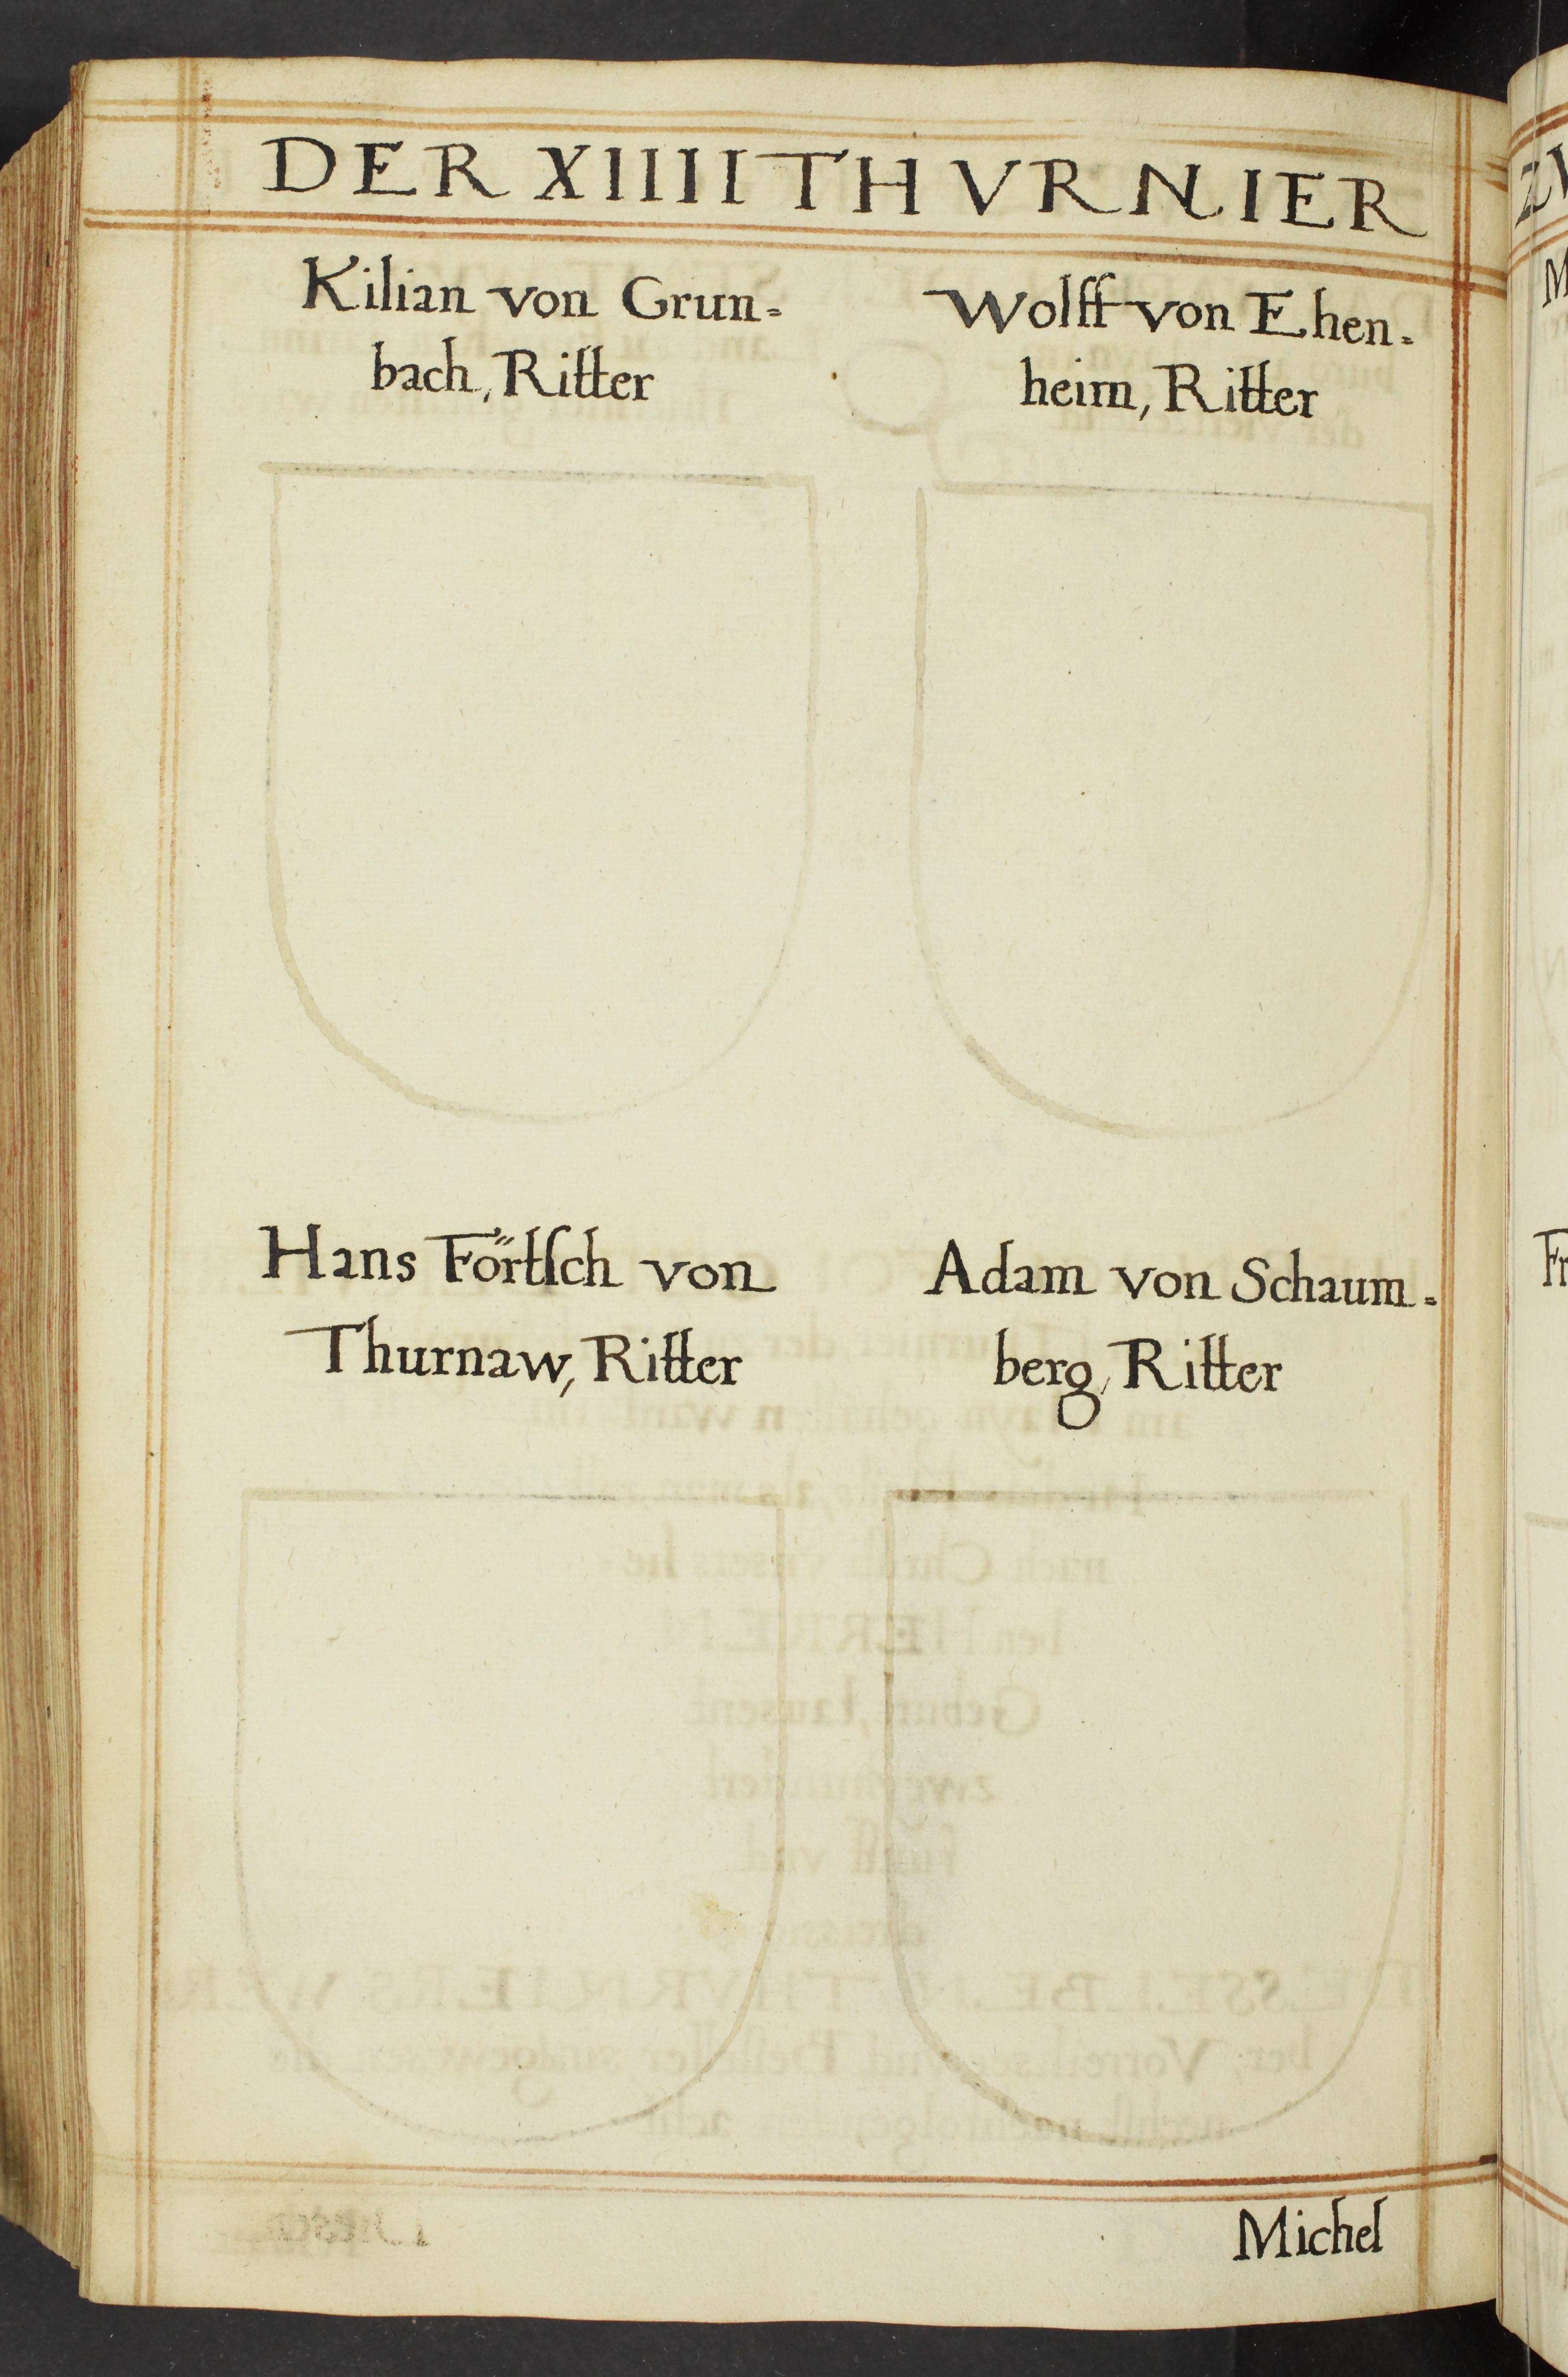 DER XIIII THVRNIER
Kilian von Grun=
bach, Ritter
Wolff von Ehen=
heim, Ritter
Hans Förtſch von
Thurnaw, Ritter
Adam von Schaum=
berg, Ritter
Michel